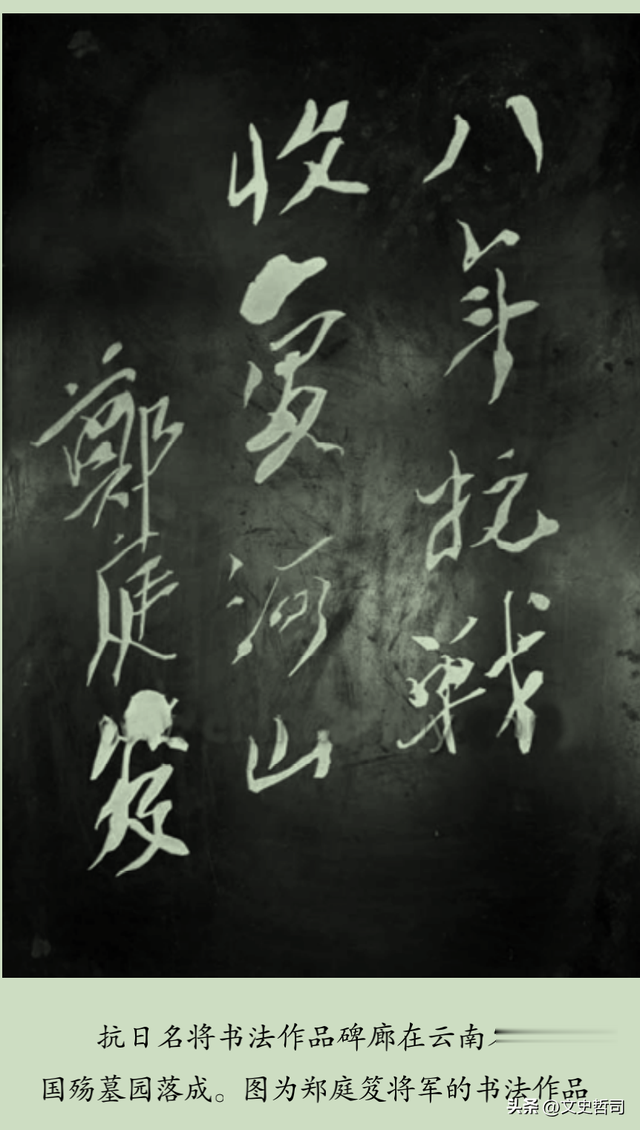 八年抗戰
收復河山
鄭庭笈
抗日名将书法作品碑廊在云南
国殇墓园落成。图为郑庭笈将军的书法作品
头条 @文史哲司